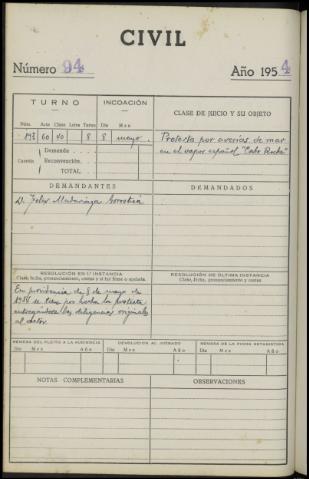 CIVIL
Número 94 Año 1954
TURNO INCOACIÓN CLASE DE JUICIO Y SU OBJETO
Núm. Acto Clase Letra Turno Día Mes
193 60 40 8 8 mayo Protesta por averías de mar
en el vapor español "Cabo Roche"
Cuantía Demanda
Reconvención.
TOTAL
DEMANDANTES DEMANDADOS
D. Félix Madariaga
RESOLUCIÓN EN 1.ª INSTANCIA RESOLUCIÓN DE ÚLTIMA INSTANCIA
Clase, fecha, pronunciamiento, costas y si fué firme o apelada. Clase, fecha, pronunciamiento y costas
En providencia de 8 de mayo de
1954 se tuvo por hecha la protesta
entregándose las diligencias originales
al actor
REMESA DEL PLEITO A LA AUDIENCIA DEVOLUCIÓN AL JUZGADO REMESA DE LA FICHA ESTADÍSTICA
Día Mes Año Día Mes Año Día Mes Año
NOTAS COMPLEMENTARIAS OBSERVACIONES